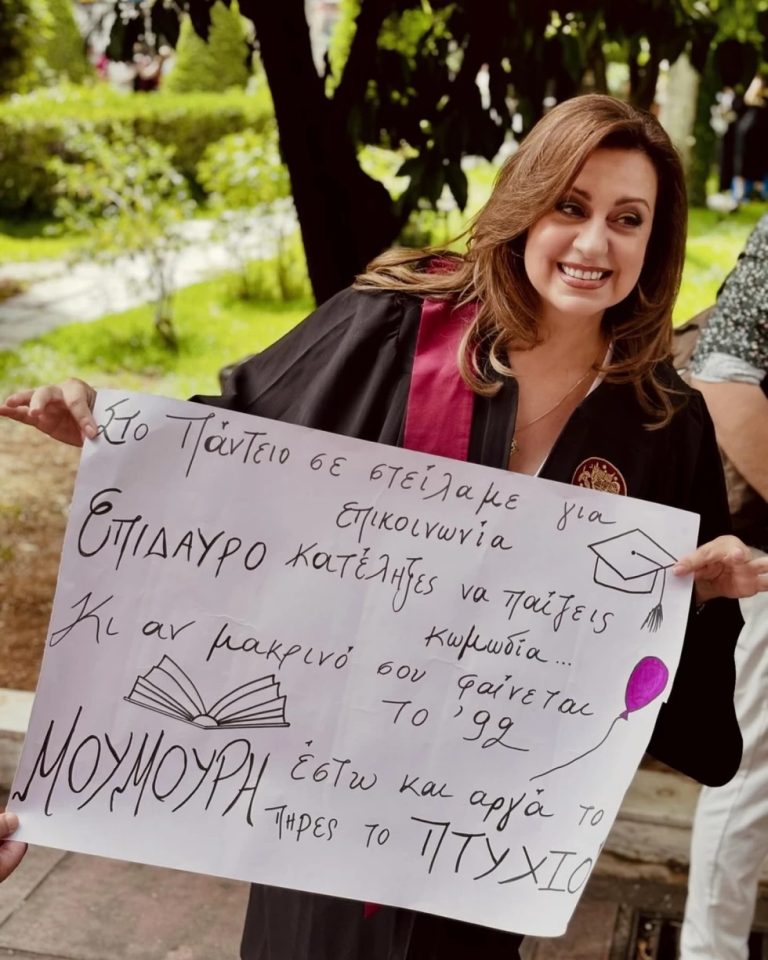 Στο Πάντειο σε στείλαμε για
επικοινωνία
ΕΠΙΔΑΥΡΟ κατέληξες να παίξεις
κωμωδία...
Κι αν μακρινό σου φαίνεται
το '92
ΜΟΥΜΟΥΡΗ έστω και αργά το
πήρες το ΠΤΥΧΙΟ